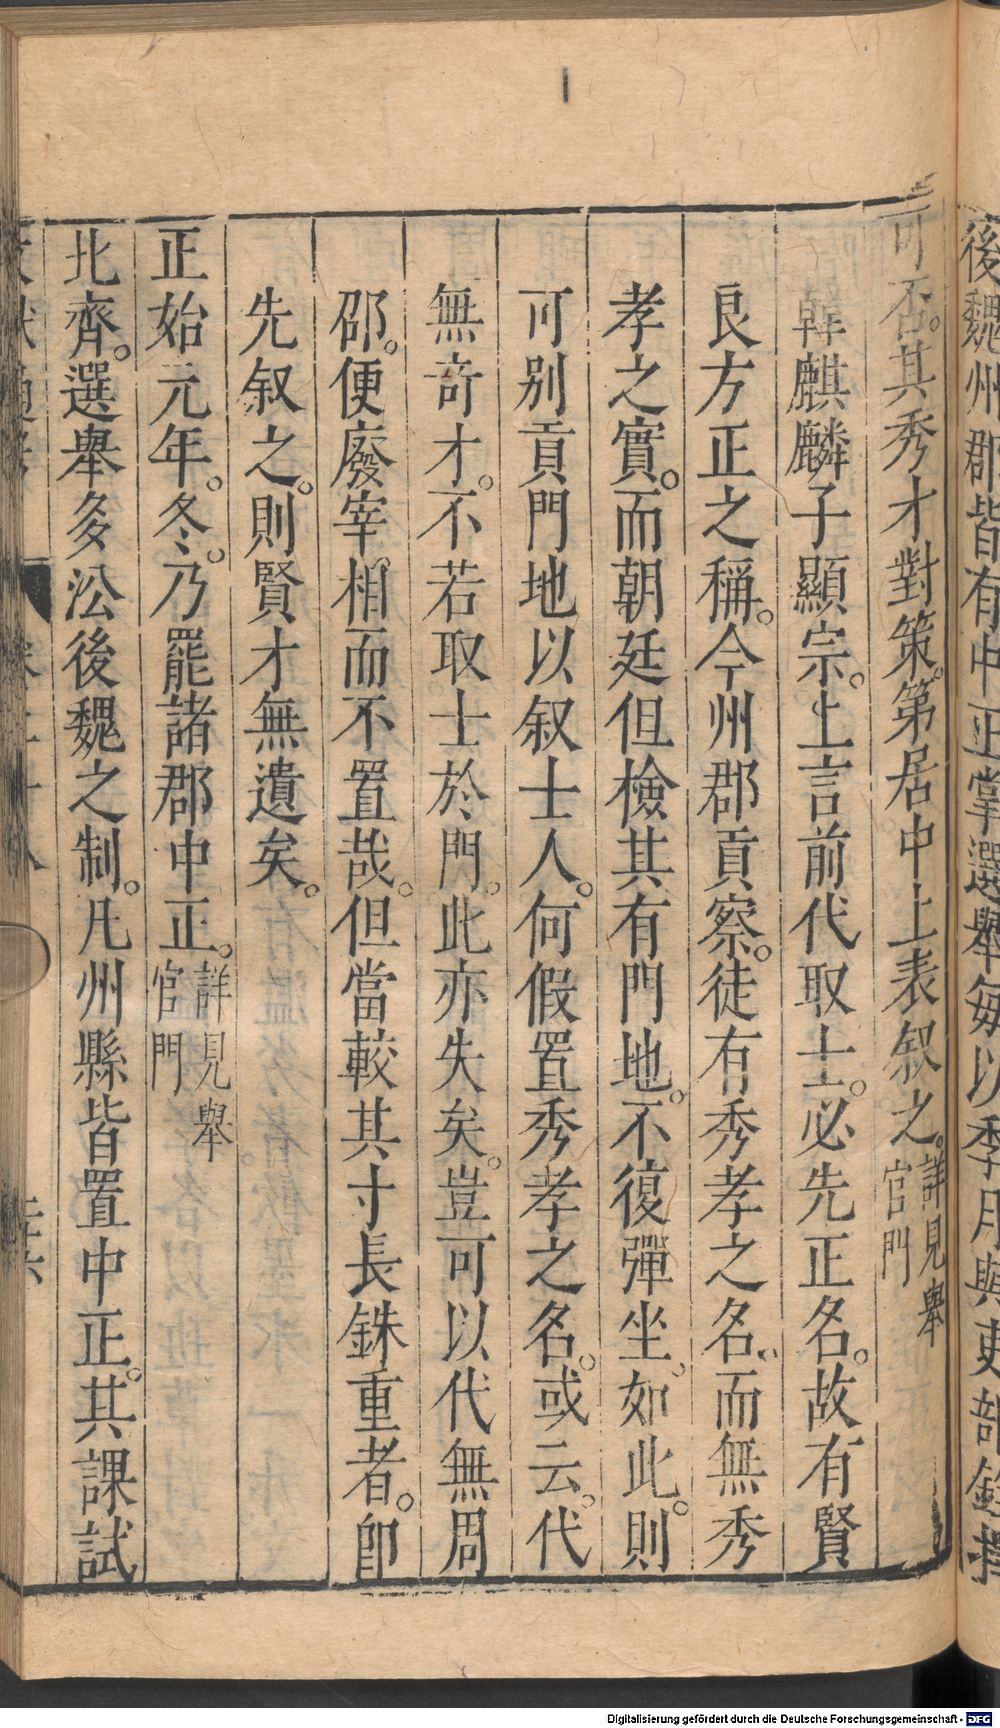 後魏州郡皆有中正掌選舉每以季月與吏部銓擇
可否其秀才對策第居中上表叙之詳見舉官門
韓麒麟子顯宗上言前代取士必先正名故有賢
良方正之稱今州郡貢察徒有秀孝之名而無秀
孝之實而朝廷但檢其有門地不復彈坐如此則
可别貢門地以叙士人何假置秀孝之名或云代
無奇才不若取士於門此亦失矣豈可以代無周
邵便廢宰相而不置哉但當較其寸長銖重者卽
先叙之則賢才無遺矣
正始元年冬乃罷諸郡中正詳見舉官門
北齊選舉多㳂後魏之制凡州縣皆置中正其課試
Digitalisierung gefördert durch die Deutsche Forschungsgemeinschaft - DFG